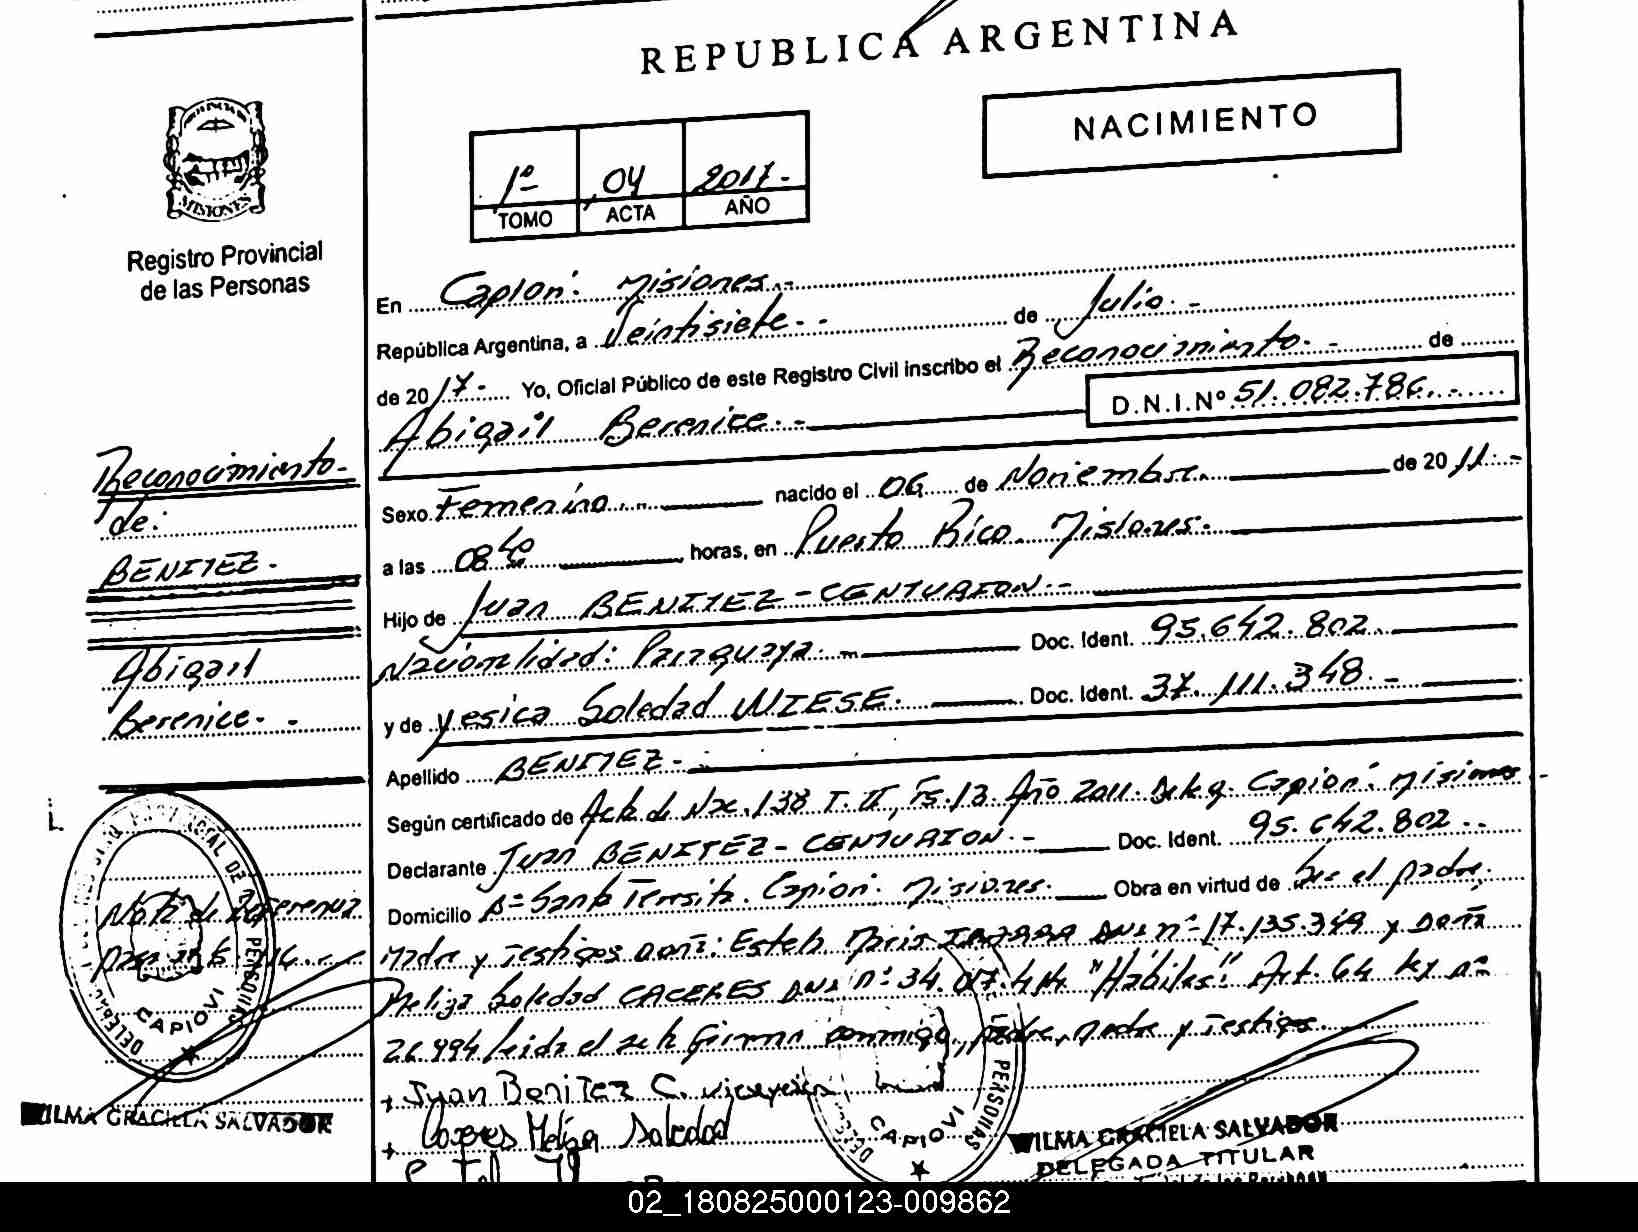 REPUBLICA ARGENTINA
NACIMIENTO
1º 04 2017.-
TOMO ACTA AÑO
MISIONES
Registro Provincial
de las Personas
En Capioví: Misiones.-
República Argentina, a Veintisiete.- de Julio.-
de 2017.- Yo, Oficial Público de este Registro Civil inscribo el Reconocimiento.- de
Abigail Berenice.- D.N.I.Nº 51.082.786.-
Sexo Femenino.- nacido el 06 de Noviembre.- de 2011.-
a las 08:40 horas, en Puerto Rico. Misiones.-
Hijo de Juan BENITEZ-CENTURION.-
Nacionalidad: Paraguaya.- Doc. Ident. 95.642.802.
y de Yesica Soledad WIESE.- Doc. Ident. 37.111.348.-
Apellido BENITEZ.-
Según certificado de Acta de Nac. 138 T. II, Fs. 13 Año 2011. Capioví Misiones
Declarante Juan BENITEZ-CENTURION.- Doc. Ident. 95.642.802.-
Domicilio Bº Santa Teresita. Capioví. Misiones. Obra en virtud de Ser el padre.
Madre y Testigos doña: Estela DNI nº 17.135.349 y Doña
Meliza Soledad CACERES DNI nº: 34.017.414 "Hábiles" Art. 64 Ley nº
26.994 leída el acta firman conmigo, padre, madre y testigos.
+ Juan Benitez C.
+ Caceres Meliza Soledad
Reconocimiento-
de:
BENITEZ.-
Abigail
Berenice.-
Nota de Referencia
CAPIOVI
WILMA GRACIELA SALVADOR
PERSONAS
CAPIOVI
WILMA GRACIELA SALVADOR
DELEGADA TITULAR
02_180825000123-009862